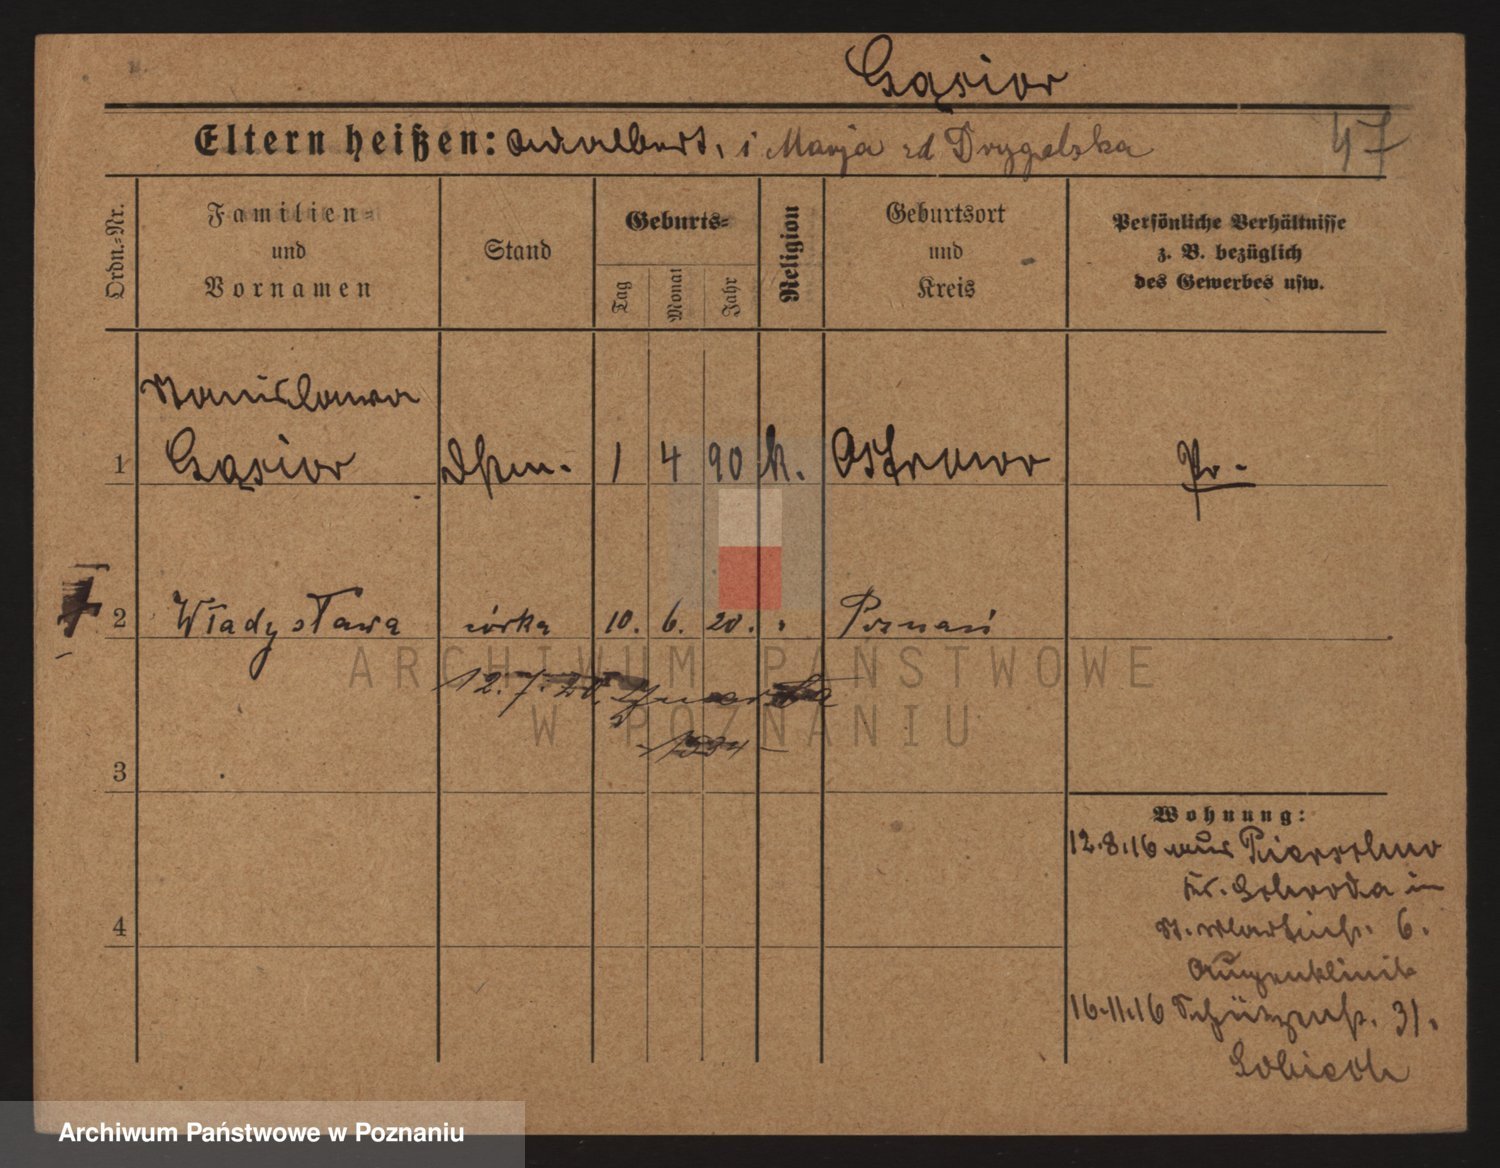 Gąsior
Eltern heißen: Adalbert, i Marja zd Drygalska
47
Ordn.=Nr.
Familien=
und
Vornamen
Stand
Geburts=
Tag
Monat
Jahr
Religion
Geburtsort
und
Kreis
Persönliche Verhältnisse
z. B. bezüglich
des Gewerbes usw.
Stanislawa
1 Gąsior Dstm. 1 4 90 k. Ostrowo Pr.
2 Władysława córka 10. 6. 20. Poznań
ARCHIWUM PAŃSTWOWE
12. 7. 20. zmarła
W POZNANIU
3
Wohnung:
12.8.16 aus
Kr. Schroda in
4 St. Martinstr. 6.
Augenklinik
16.11.16 Schützenstr. 31.
Archiwum Państwowe w Poznaniu